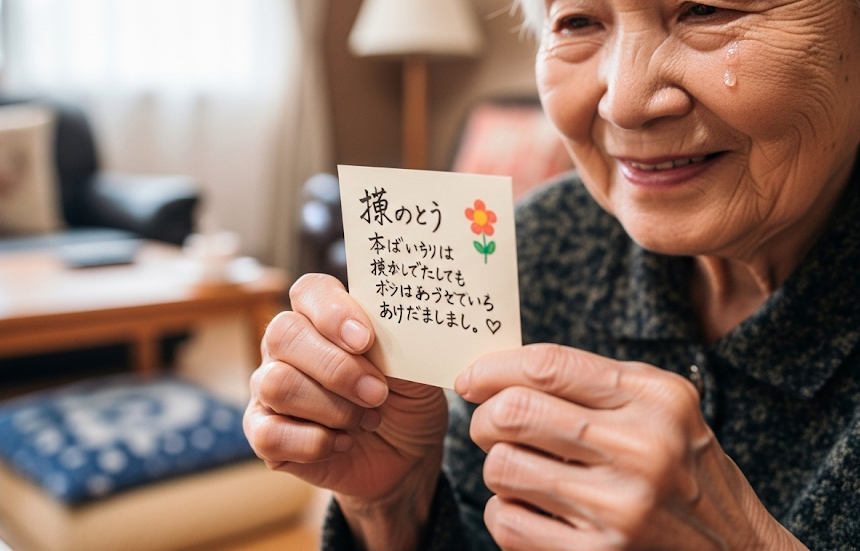 のとう
本ばいうりは
かしでたしても
はあうとていろ
あけだましまし。♡